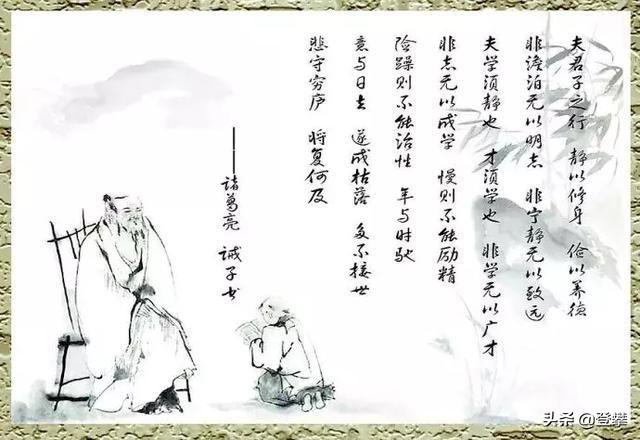 夫君子之行 静以修身 俭以养德
非澹泊无以明志 非宁静无以致远
夫学须静也 才须学也 非学无以广才
非志无以成学 慢则不能励精
险躁则不能治性 年与时驰
意与日去 遂成枯落 多不接世
悲守穷庐 将复何及
——诸葛亮 诫子书
头条 @登攀